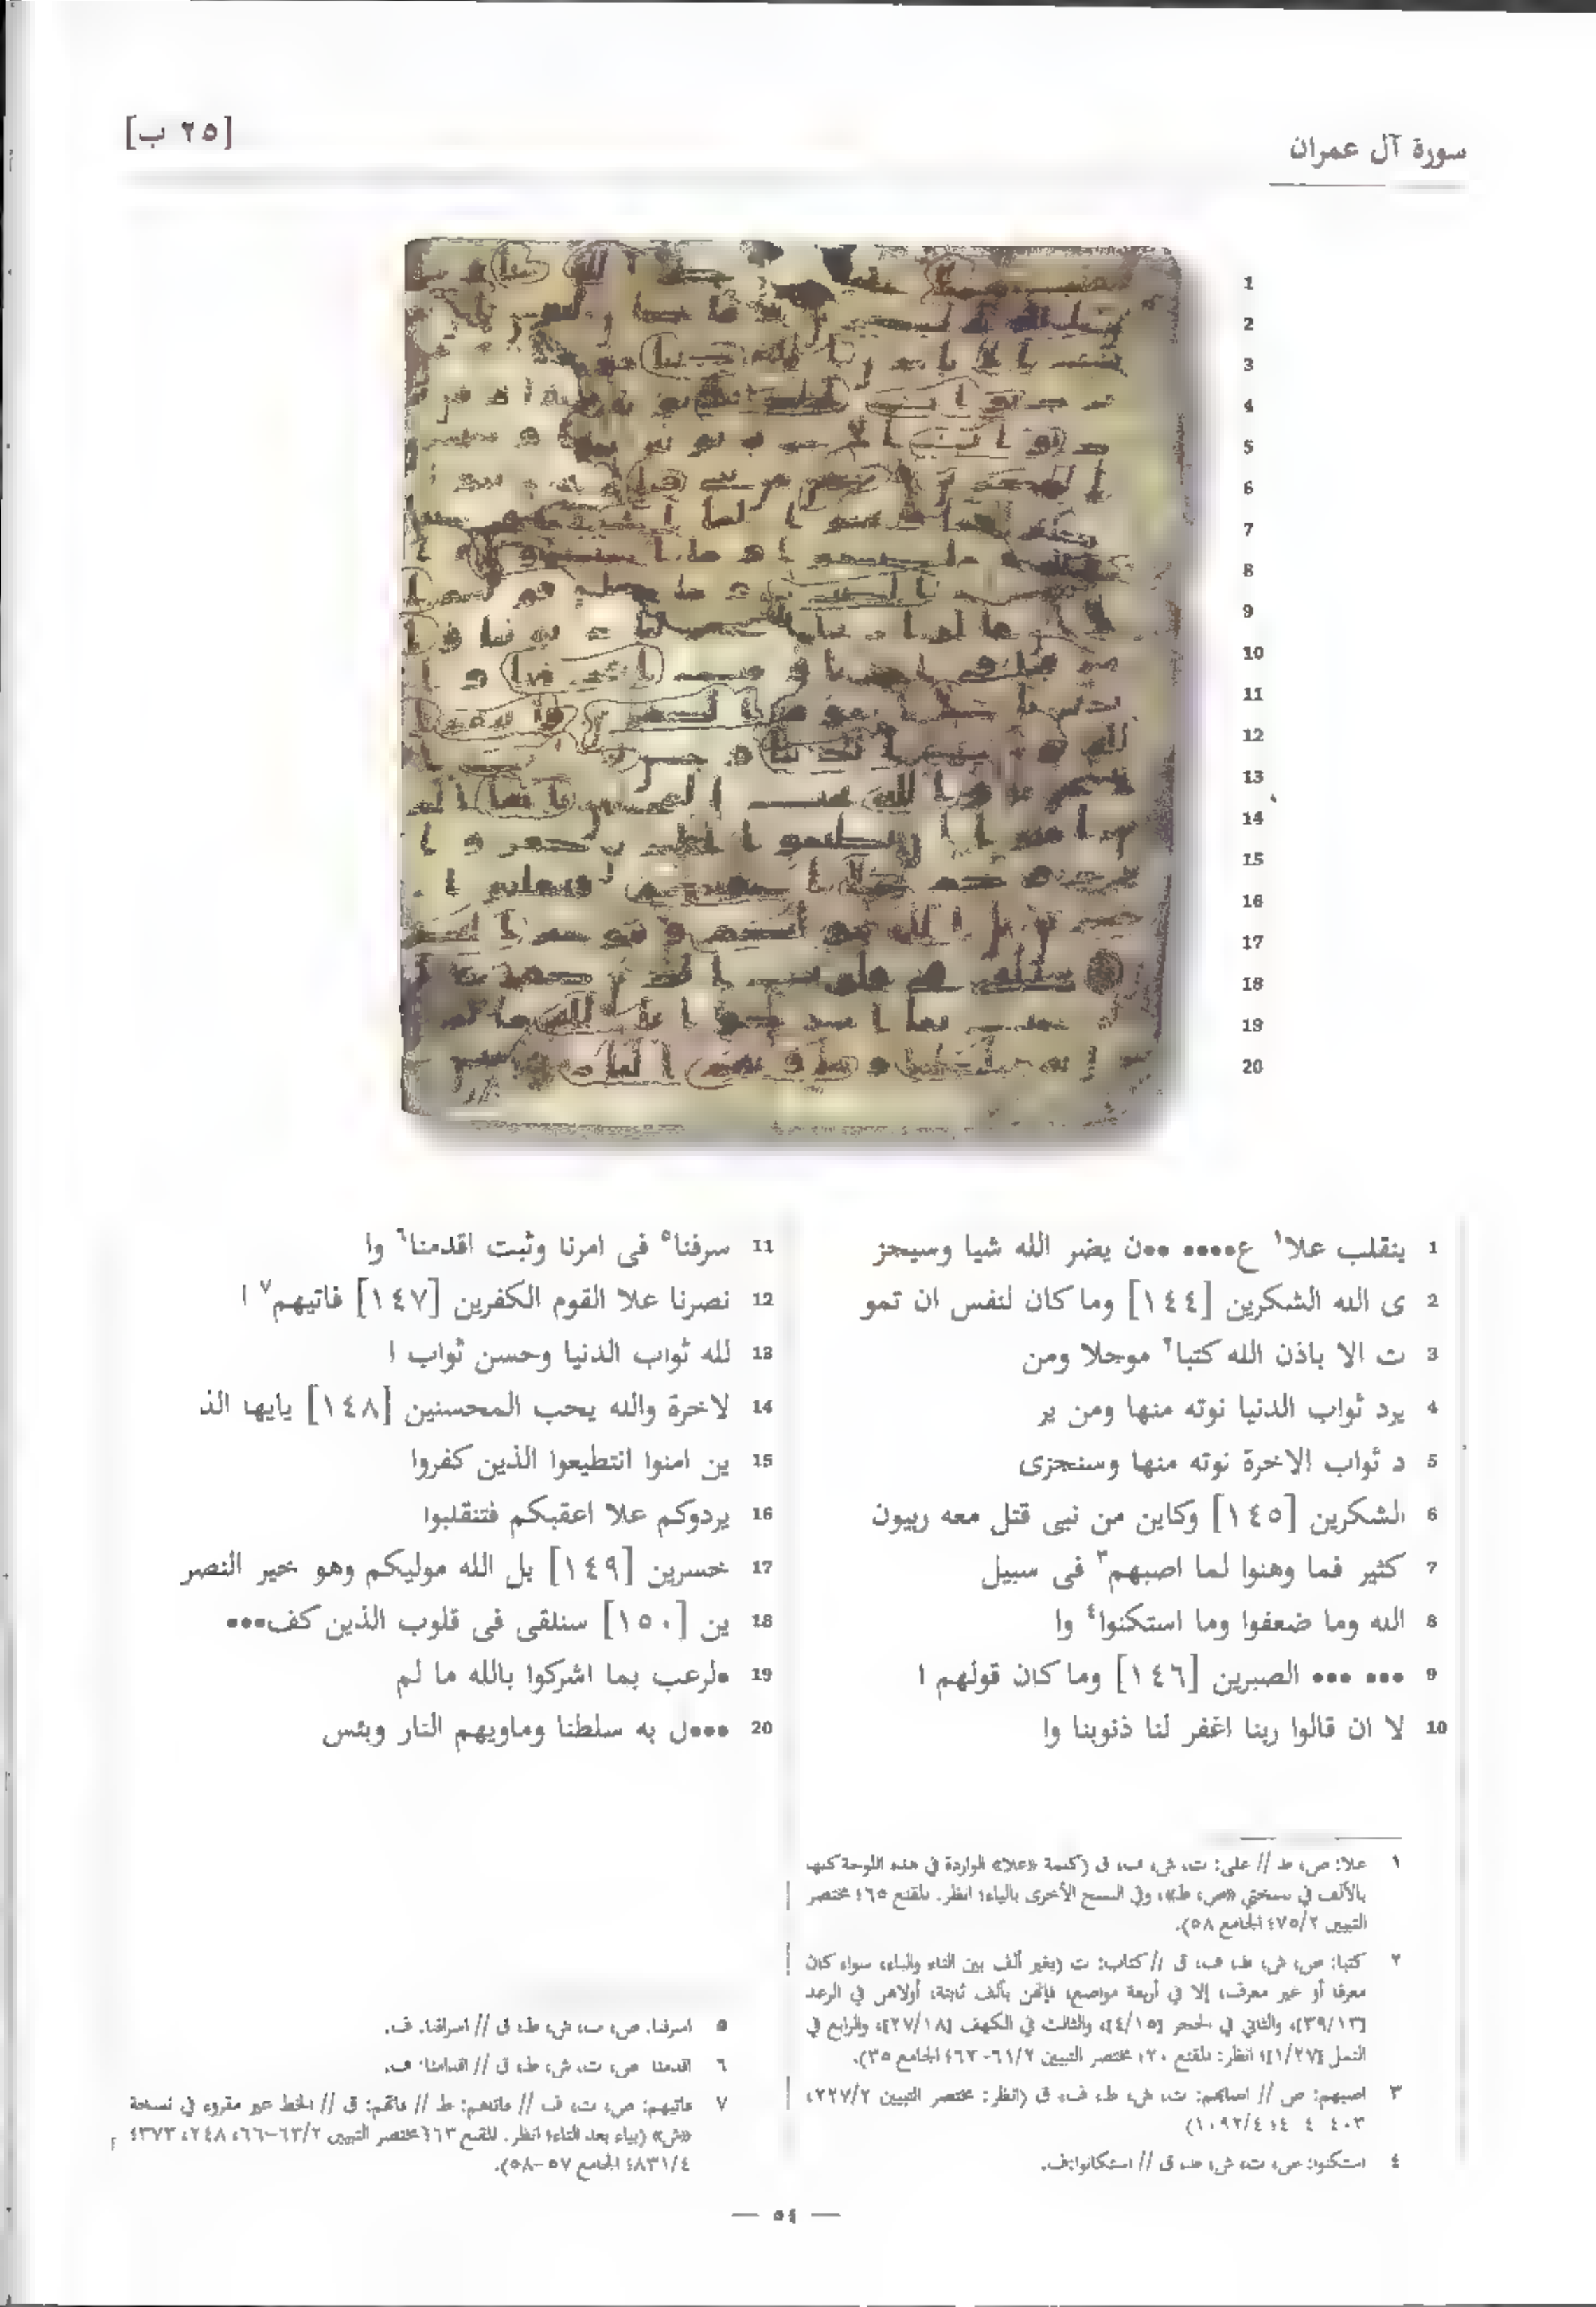 سورة آل عمران
[٢٥ ب]
1
2
3
4
5
6
7
8
9
10
11
12
13
14
15
16
17
18
19
20
1 ينقلب علا١ ع•••• ••ن يضر الله شيا وسيجز
2 ى الله الشكرين [١٤٤] وما كان لنفس ان تمو
3 ت الا باذن الله كتبا٢ موجلا ومن
4 يرد ثواب الدنيا نوته منها ومن ير
5 د ثواب الاخرة نوته منها وسنجزى
6 الشكرين [١٤٥] وكاين من نبى قتل معه ربيون
7 كثير فما وهنوا لما اصبهم٣ فى سبيل
8 الله وما ضعفوا وما استكنوا٤ وا
9 ••• ••• الصبرين [١٤٦] وما كان قولهم ا
10 لا ان قالوا ربنا اغفر لنا ذنوبنا وا
11 سرفنا٥ فى امرنا وثبت اقدمنا٦ وا
12 نصرنا علا القوم الكفرين [١٤٧] فاتيهم٧ ا
13 لله ثواب الدنيا وحسن ثواب ا
14 لاخرة والله يحب المحسنين [١٤٨] يايها الذ
15 ين امنوا انتطيعوا الذين كفروا
16 يردوكم علا اعقبكم فتنقلبوا
17 خسرين [١٤٩] بل الله موليكم وهو خير النصر
18 ين [١٥٠] سنلقى فى قلوب الذين كف•••
19 •لرعب بما اشركوا بالله ما لم
20 •••ل به سلطنا وماويهم النار وبئس
١ علا: ص، ط // على: ت، ش، ف، ق (كلمة «علا» الواردة في هذه اللوحة كلها
بالألف في نسختي «ص، ط»، وفي النسخ الأخرى بالياء؛ انظر: المقنع ٦٥؛ مختصر
التبيين ٧٥/٢؛ الجامع ٥٨).
٢ كتبا: ص، ش، ط، ف، ق // كتاب: ت (بغير ألف بين التاء والباء، سواء كان
معرفا أو غير معرف، إلا في أربعة مواضع، فإنهن بألف ثابتة، أولاهن في الرعد
[٣٩/١٣]، والثاني في الحجر [٤/١٥]، والثالث في الكهف [٢٧/١٨]، والرابع في
النمل [١/٢٧]؛ انظر: المقنع ٢٠؛ مختصر التبيين ٦١/٢-٦٢؛ الجامع ٣٥).
٣ اصبهم: ص // اصابهم: ت، ش، ط، ف، ق (انظر: مختصر التبيين ٢٢٧/٢،
٤ استكنوا: ص، ت، ش، ط، ق // استكانوا: ف.
٥ اسرفنا: ص، ت، ش، ط، ق // اسرافنا: ف.
٦ اقدمنا: ص، ت، ش، ط، ق // اقدامنا: ف.
٧ فاتيهم: ص، ت، ف // فاتاهم: ط // فاتهم: ق // الخط غير مقروء في نسخة
«ش» (بياء بعد التاء؛ انظر: المقنع ٦٣؛ مختصر التبيين ٦٣/٢-٦٦، ٢٤٨، ٣٧٣؛
٨٣١/٤؛ الجامع ٥٧-٥٨).
— ٥٤ —